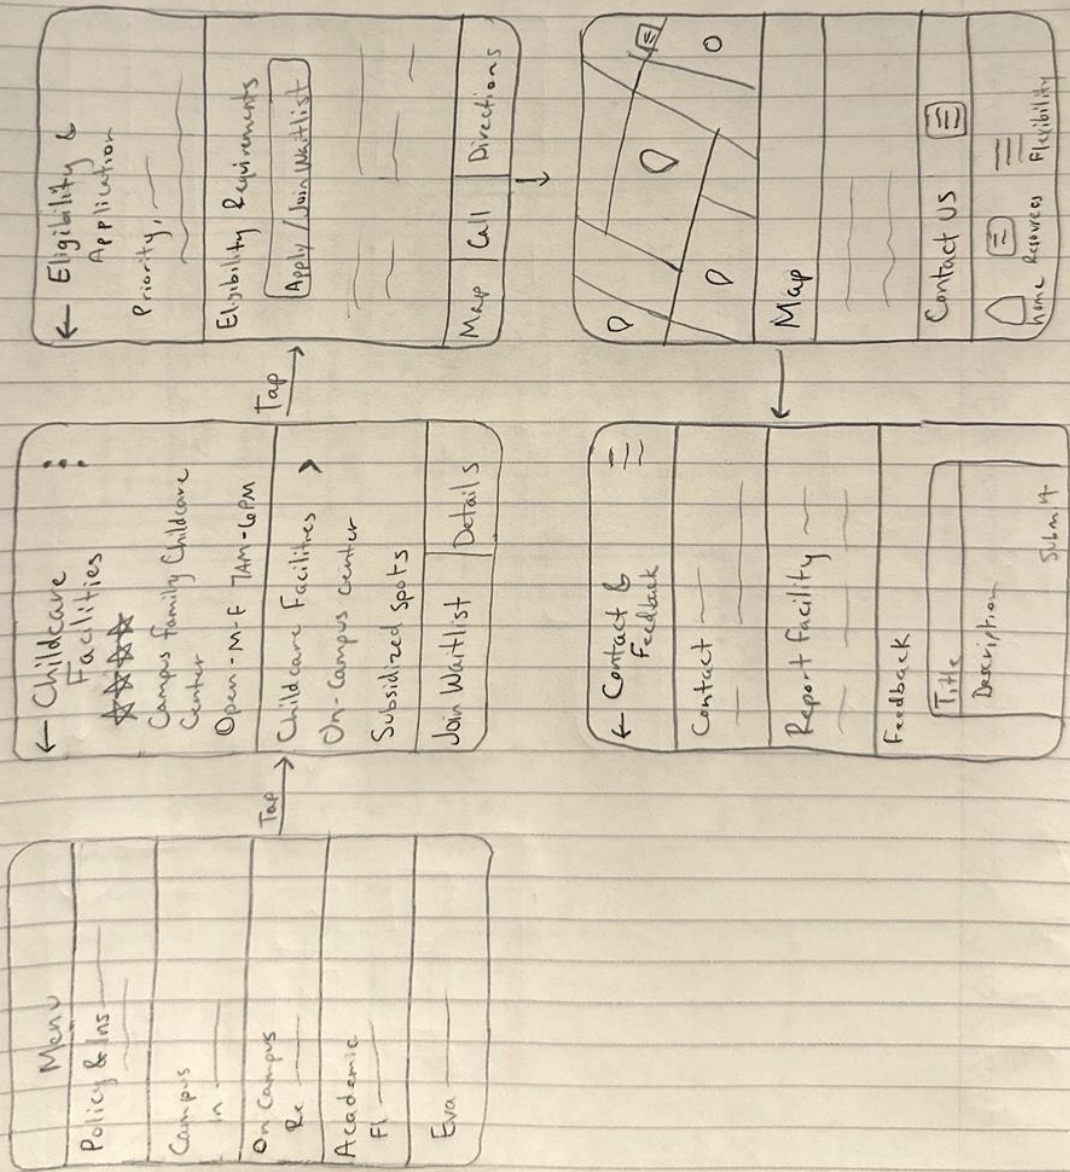 Menu
Policy & Ins
Campus
In
On Campus
Re
Academic
Fl
Eva
Tap
← Childcare
Facilities
Campus Family Childcare
Center
Open - M-F 7AM-6PM
Childcare Facilities >
On-Campus center
Subsidized spots
Join Waitlist
Details
Tap
← Eligibility &
Application
Priority,
Eligibility Requirements
Apply/Join Waitlist
Map
Call
Directions
Map
Contact US
home
Resources
Flexibility
← Contact &
Feedback
Contact
Report Facility
Feedback
Title
Description
Submit